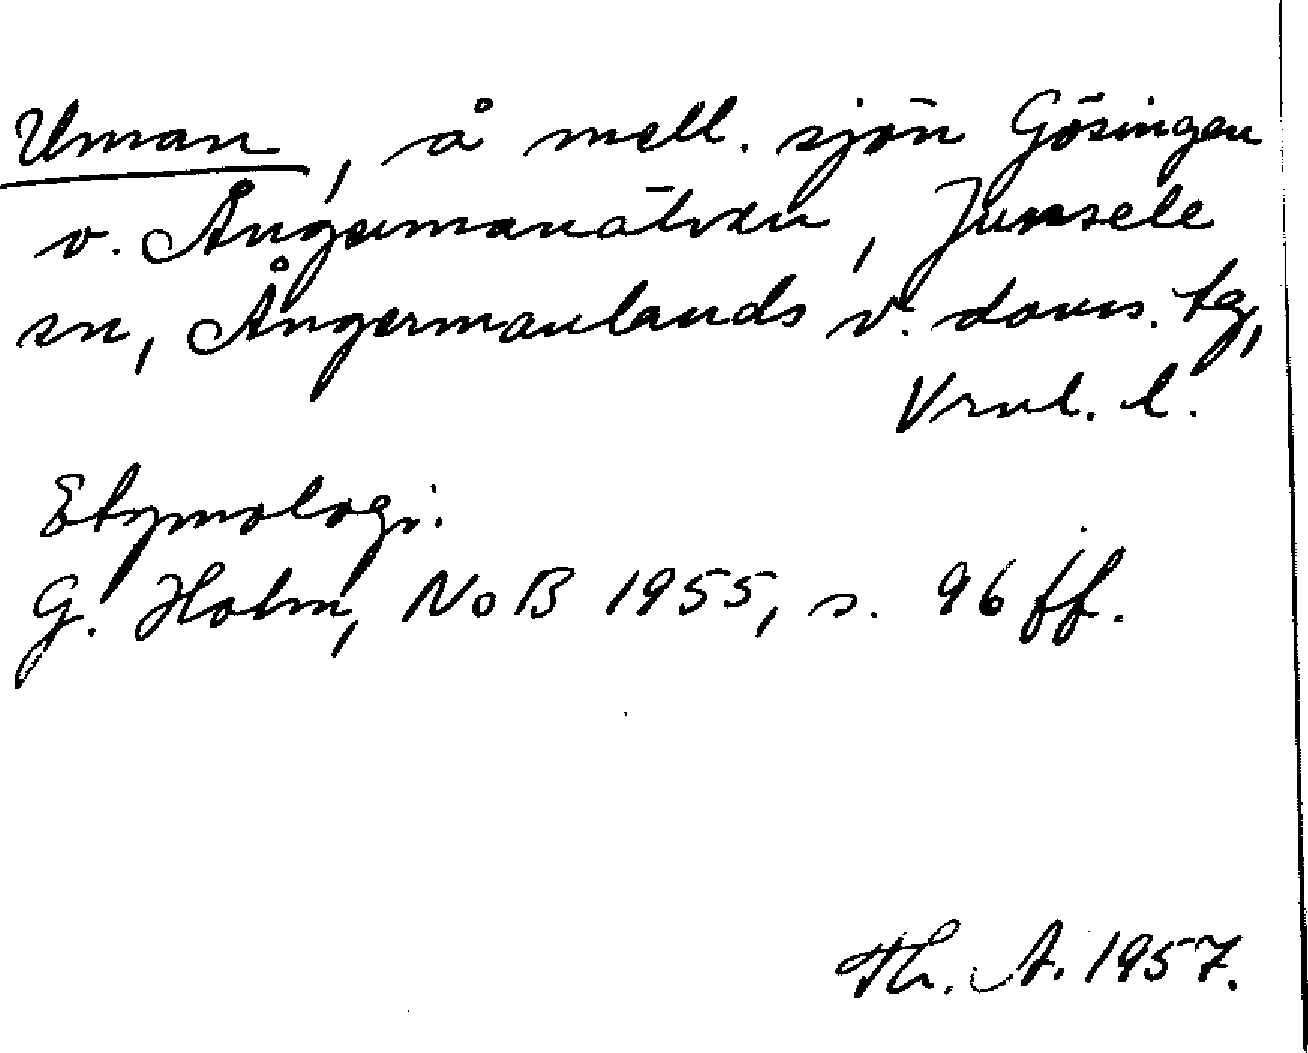 Uman, å mell. sjön Gösingen
v. Ångermanälven, Junsele
sn, Ångermanlands v. doms. tg,
Vrnl. l.
Etymologi:
G. Holm, NoB 1955, s. 96 ff.
Th. A. 1957.